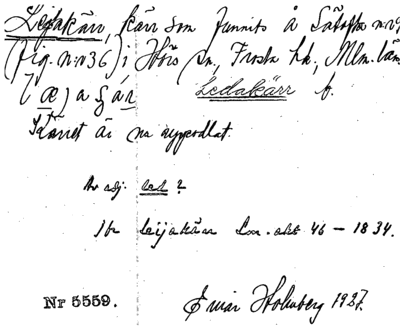 Ledakärr, kärr som funnits å Sätofta nr 9
(fig. nr 36) i Hörs sn, Frosta hd., Mlm. län.
l(æ) a g á r Ledakärr b.
Kärret är nu uppodlat.
Av adj. led?
Jbr leijakärr Lm. akt 46 – 1834.
Nr 5559. Einar Holmberg 1927.